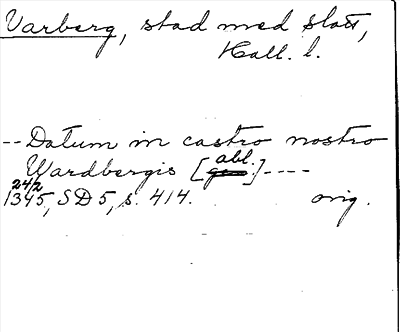 Varberg, stad med slott,
Hall. l.
--Datum in castro nostro
abl.
Wardbergis [gen]----
24/2
1345, SD5, s. 414. orig.